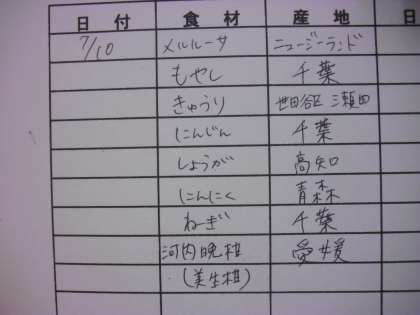 日付 食材 産地 日
7/10 メルルーサ ニュージーランド
もやし 千葉
きゅうり 世田谷区 瀬田
にんじん 千葉
しょうが 高知
にんにく 青森
ねぎ 千葉
河内晩柑 愛媛
(美生柑)